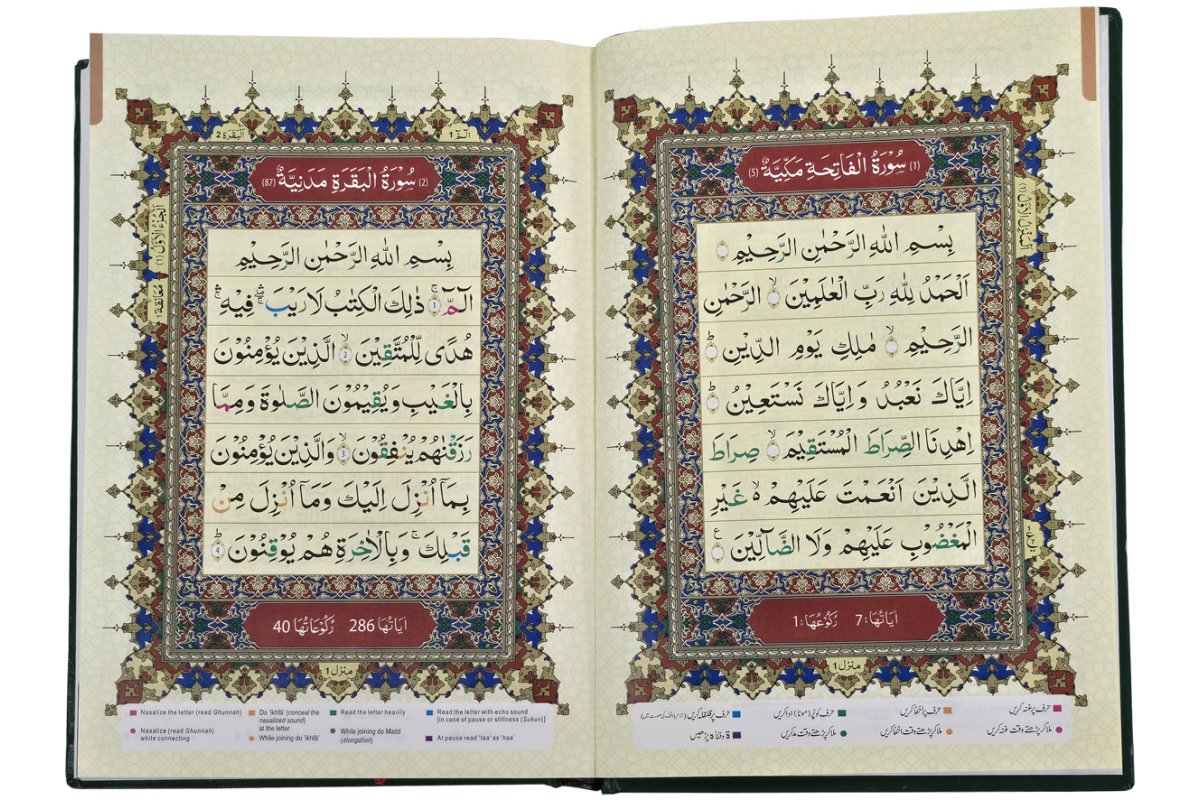 (1) سُوْرَةُ الْفَاتِحَةِ مَكِّيَّةٌ (5)
بِسْمِ اللهِ الرَّحْمٰنِ الرَّحِيْمِ
اَلْحَمْدُ لِلّٰهِ رَبِّ الْعٰلَمِيْنَ ۙ الرَّحْمٰنِ
الرَّحِيْمِ ۙ مٰلِكِ يَوْمِ الدِّيْنِ ؕ
اِيَّاكَ نَعْبُدُ وَ اِيَّاكَ نَسْتَعِيْنُ ؕ
اِهْدِنَا الصِّرَاطَ الْمُسْتَقِيْمَ ۙ صِرَاطَ
الَّذِيْنَ اَنْعَمْتَ عَلَيْهِمْ ۙ۬ غَيْرِ
الْمَغْضُوْبِ عَلَيْهِمْ وَلَا الضَّآلِّيْنَ
اٰيَاتُهَا: 7 رُكُوْعُهَا: 1
منزل 1
حرف پر غنہ کریں
حرف پر اخفا کریں
حرف کو پُر (موٹا) ادا کریں
حرف پر قلقلہ کریں
ملا کر پڑھتے وقت غنہ کریں
ملا کر پڑھتے وقت اخفا کریں
ملا کر پڑھتے وقت مد کریں
ۃ وقفاً ہ پڑھیں
الٓمّٓ 1
اَلْبَقَرَة 2
(2) سُوْرَةُ الْبَقَرَةِ مَدَنِيَّةٌ (87)
اَلْجُزْءُ الْاَوَّلُ (1)
مُعَانَقَة ١
بِسْمِ اللهِ الرَّحْمٰنِ الرَّحِيْمِ
الٓمّٓ ۚ 1 ذٰلِكَ الْكِتٰبُ لَا رَيْبَ ۛ فِيْهِ ۛ
هُدًى لِّلْمُتَّقِيْنَ ۙ 2 الَّذِيْنَ يُؤْمِنُوْنَ
بِالْغَيْبِ وَيُقِيْمُوْنَ الصَّلٰوةَ وَمِمَّا
رَزَقْنٰهُمْ يُنْفِقُوْنَ ۙ 3 وَالَّذِيْنَ يُؤْمِنُوْنَ
بِمَاۤ اُنْزِلَ اِلَيْكَ وَمَاۤ اُنْزِلَ مِنْ
قَبْلِكَ ۚ وَبِالْاٰخِرَةِ هُمْ يُوْقِنُوْنَ ؕ 4
اٰيَاتُهَا 286 رُكُوْعَاتُهَا 40
منزل 1
Nasalize the letter (read Ghunnah)
Nasalize (read Ghunnah)
while connecting
Do 'ikhfā' (conceal the
nasalized sound)
at the letter
While joining do 'ikhfā'
Read the letter heavily
While joining do Madd
(elongation)
Read the letter with echo sound
[in case of pause or stillness (Sukūn)]
At pause read 'taa' as 'haa'